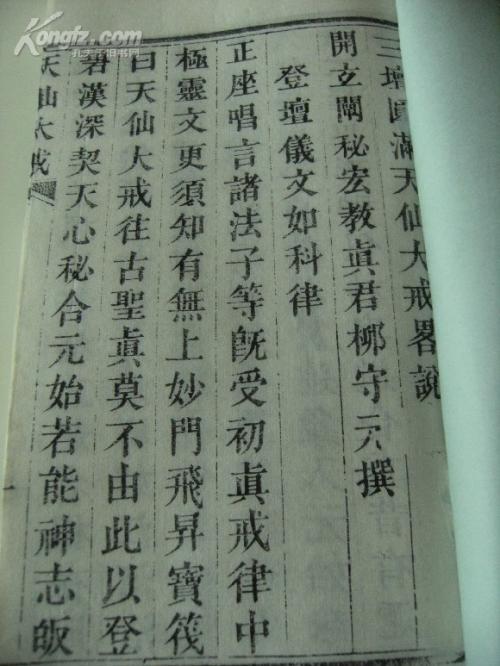 三壇圓滿天仙大戒畧說
開玄闡秘宏教眞君柳守元撰
登壇儀文如科律
正座唱言諸法子等旣受初眞戒律中
極靈文更須知有無上妙門飛昇寶筏
曰天仙大戒往古聖眞莫不由此以登
霄漢深契天心秘合元始若能神志皈
天仙大戒
Kongfz.com
孔夫子旧书网